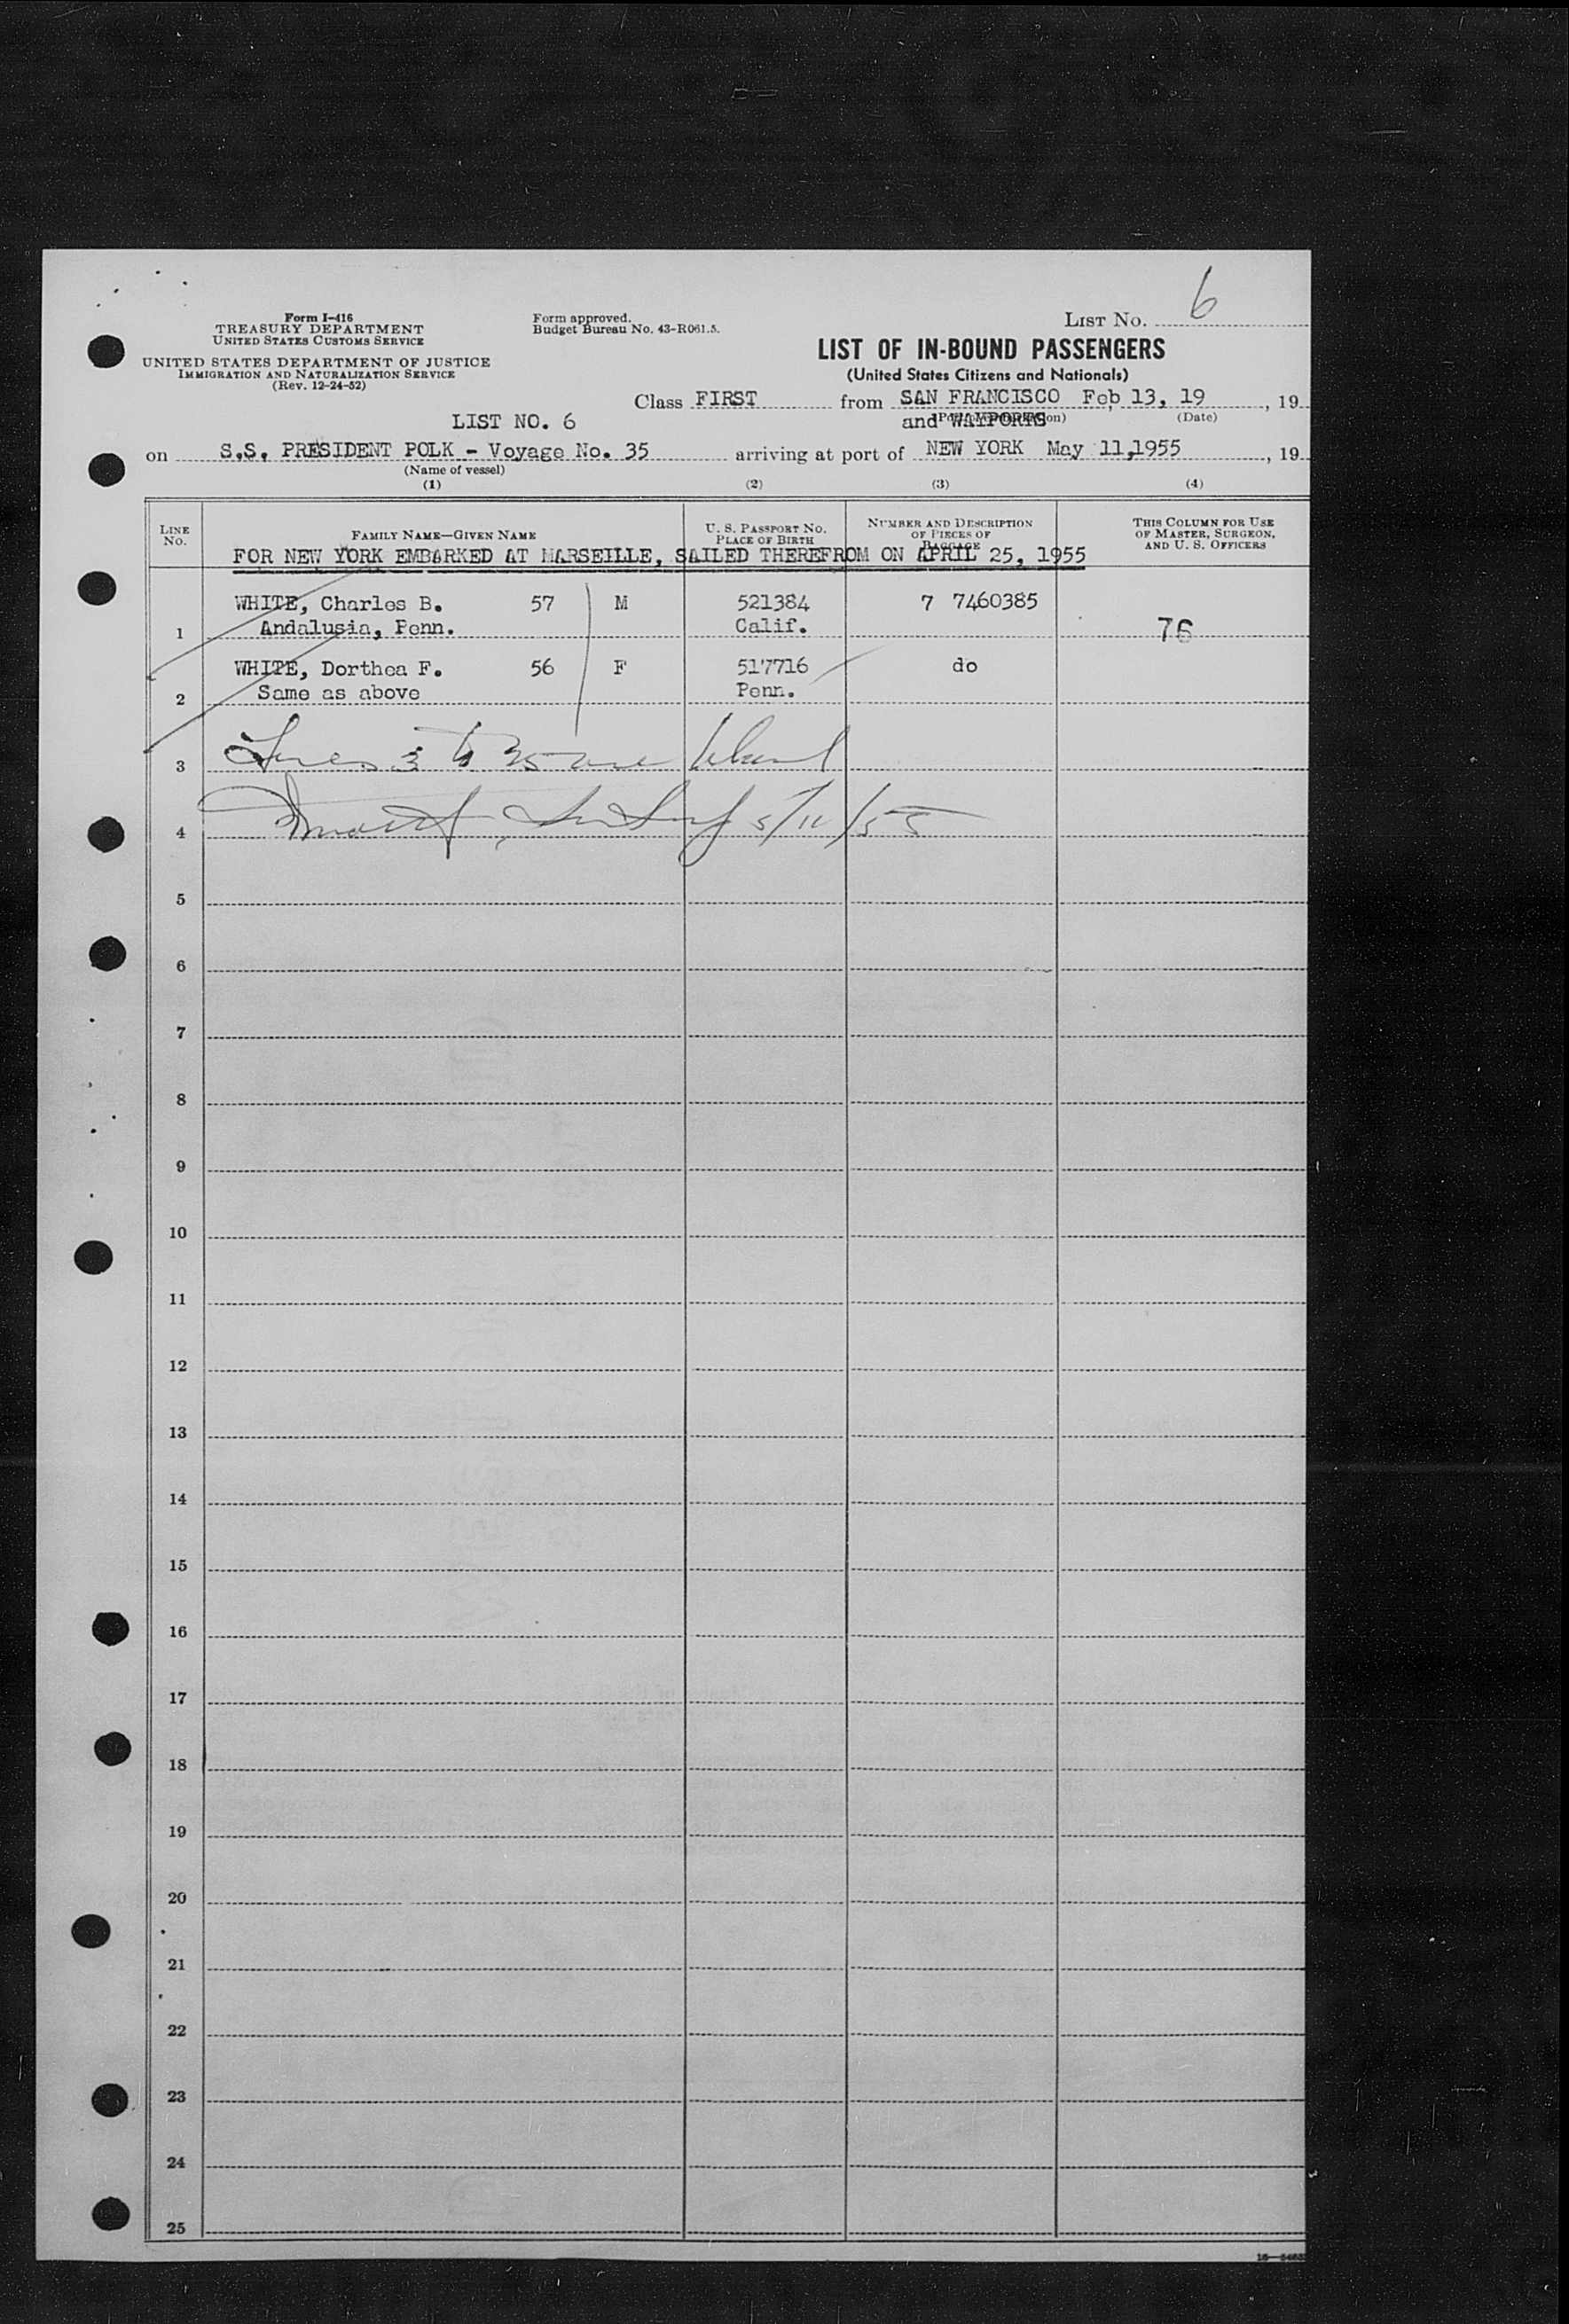 6
List No.
Form I-416
TREASURY DEPARTMENT
United States Customs Service
UNITED STATES DEPARTMENT OF JUSTICE
Immigration and Naturalization Service
(Rev. 12-24-52)
Form approved.
Budget Bureau No. 43-R061.5.
LIST OF IN-BOUND PASSENGERS
(United States Citizens and Nationals)
Class FIRST from SAN FRANCISCO Feb 13, 19 , 19
LIST NO. 6 and WAYPORTS (Date)
on S.S. PRESIDENT POLK - Voyage No. 35 arriving at port of NEW YORK May 11,1955 , 19
(Name of vessel)
(1) (2) (3) (4)
Line No.
Family Name—Given Name
U. S. Passport No.
Place of Birth
Number and Description
of Pieces of
Baggage
This Column for Use
of Master, Surgeon,
and U. S. Officers
FOR NEW YORK EMBARKED AT MARSEILLE, SAILED THEREFROM ON APRIL 25, 1955
WHITE, Charles B. 57 M 521384 7 7460385
1 Andalusia, Penn. Calif. 76
WHITE, Dorthea F. 56 F 517716 do
2 Same as above Penn.
3 Lines 3 to 25 are blank
4 5/11/55
5
6
7
8
9
10
11
12
13
14
15
16
17
18
19
20
21
22
23
24
25